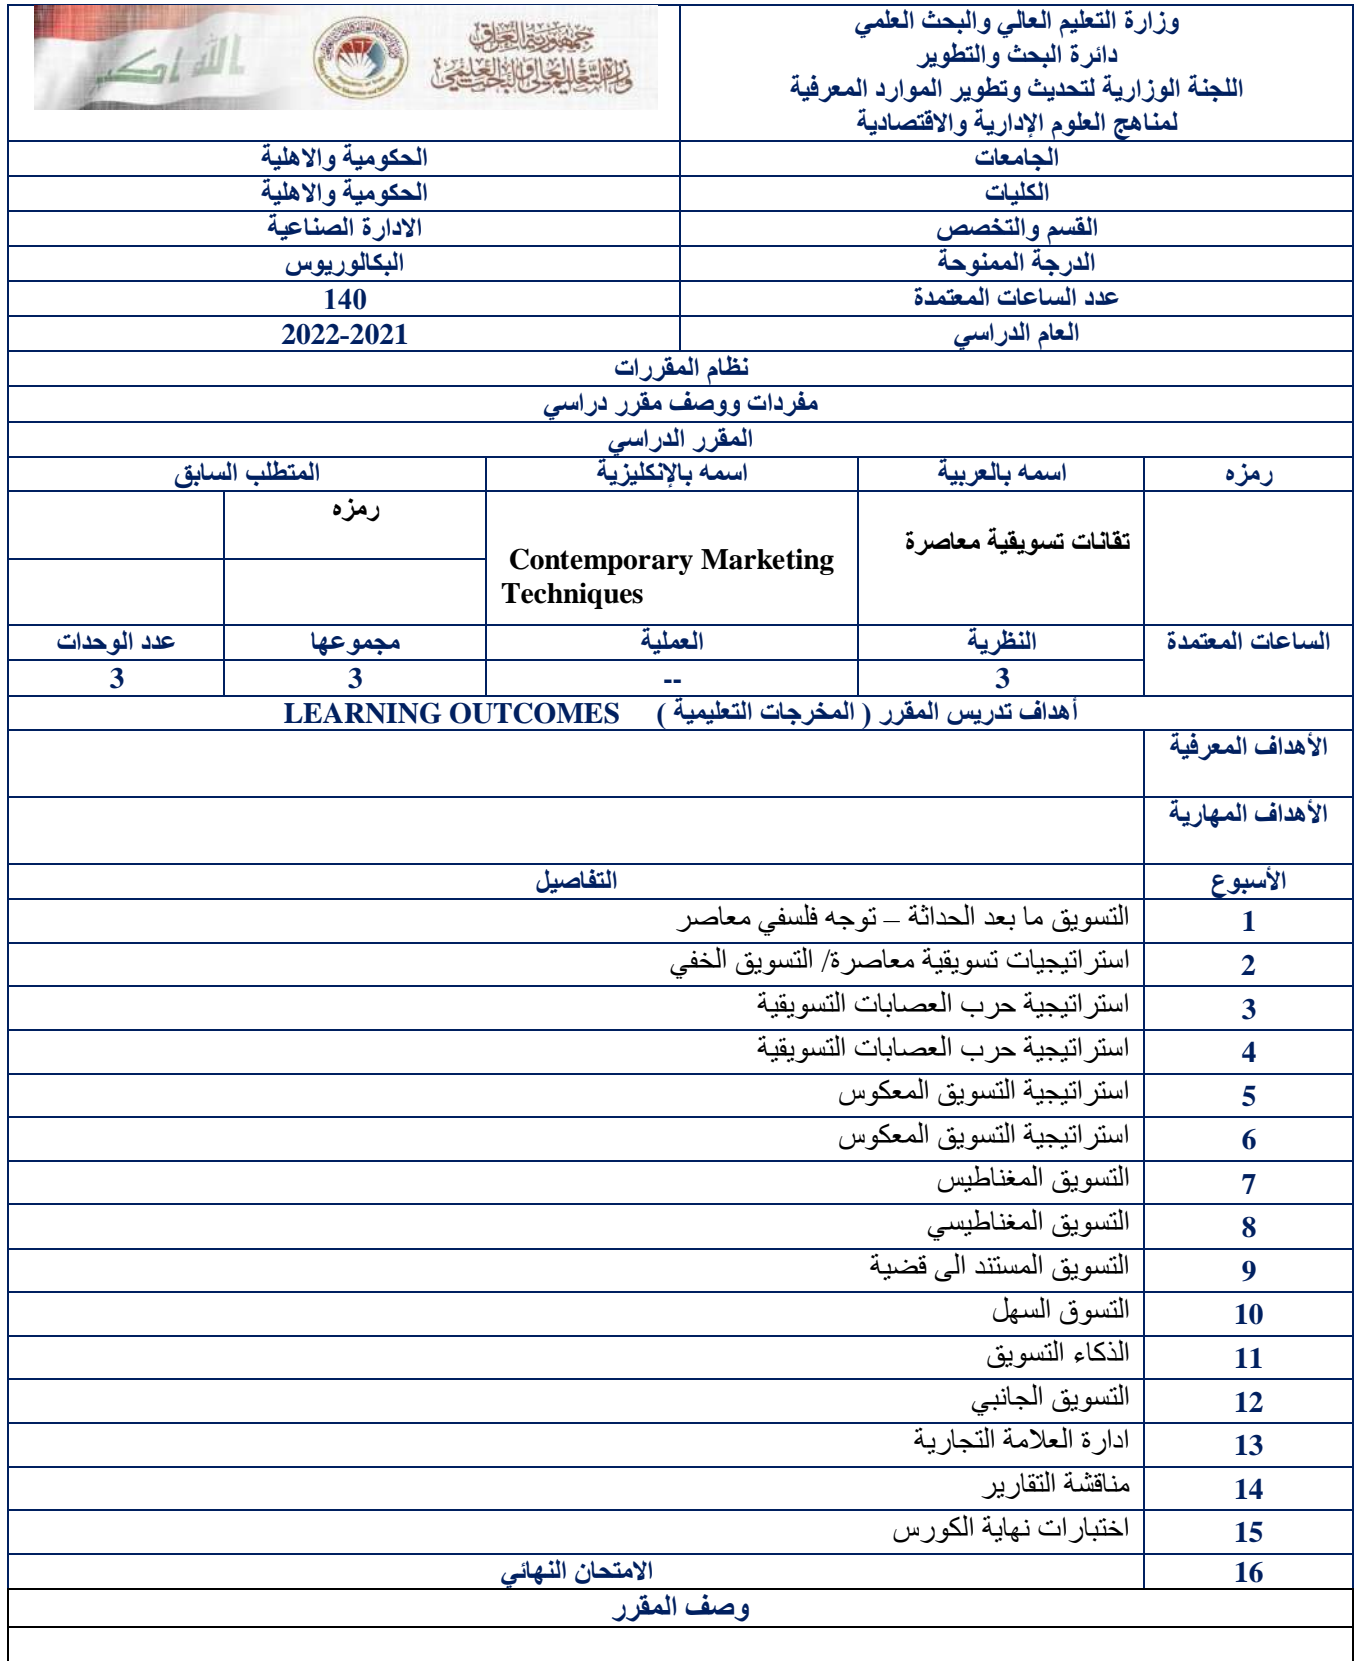 وزارة التعليم العالي والبحث العلمي
دائرة البحث والتطوير
اللجنة الوزارية لتحديث وتطوير الموارد المعرفية
لمناهج العلوم الإدارية والاقتصادية
جمهورية العراق
وزارة التعليم العالي والبحث العلمي
الله اكبر
الجامعات الحكومية والاهلية
الكليات الحكومية والاهلية
القسم والتخصص الادارة الصناعية
الدرجة الممنوحة البكالوريوس
عدد الساعات المعتمدة 140
العام الدراسي 2021-2022
نظام المقررات
مفردات ووصف مقرر دراسي
المقرر الدراسي
رمزه اسمه بالعربية اسمه بالإنكليزية المتطلب السابق
رمزه
تقانات تسويقية معاصرة
Contemporary Marketing
Techniques
الساعات المعتمدة النظرية العملية مجموعها عدد الوحدات
3 -- 3 3
أهداف تدريس المقرر ( المخرجات التعليمية ) LEARNING OUTCOMES
الأهداف المعرفية
الأهداف المهارية
الأسبوع التفاصيل
1 التسويق ما بعد الحداثة – توجه فلسفي معاصر
2 استراتيجيات تسويقية معاصرة/ التسويق الخفي
3 استراتيجية حرب العصابات التسويقية
4 استراتيجية حرب العصابات التسويقية
5 استراتيجية التسويق المعكوس
6 استراتيجية التسويق المعكوس
7 التسويق المغناطيس
8 التسويق المغناطيسي
9 التسويق المستند الى قضية
10 التسوق السهل
11 الذكاء التسويق
12 التسويق الجانبي
13 ادارة العلامة التجارية
14 مناقشة التقارير
15 اختبارات نهاية الكورس
16 الامتحان النهائي
وصف المقرر